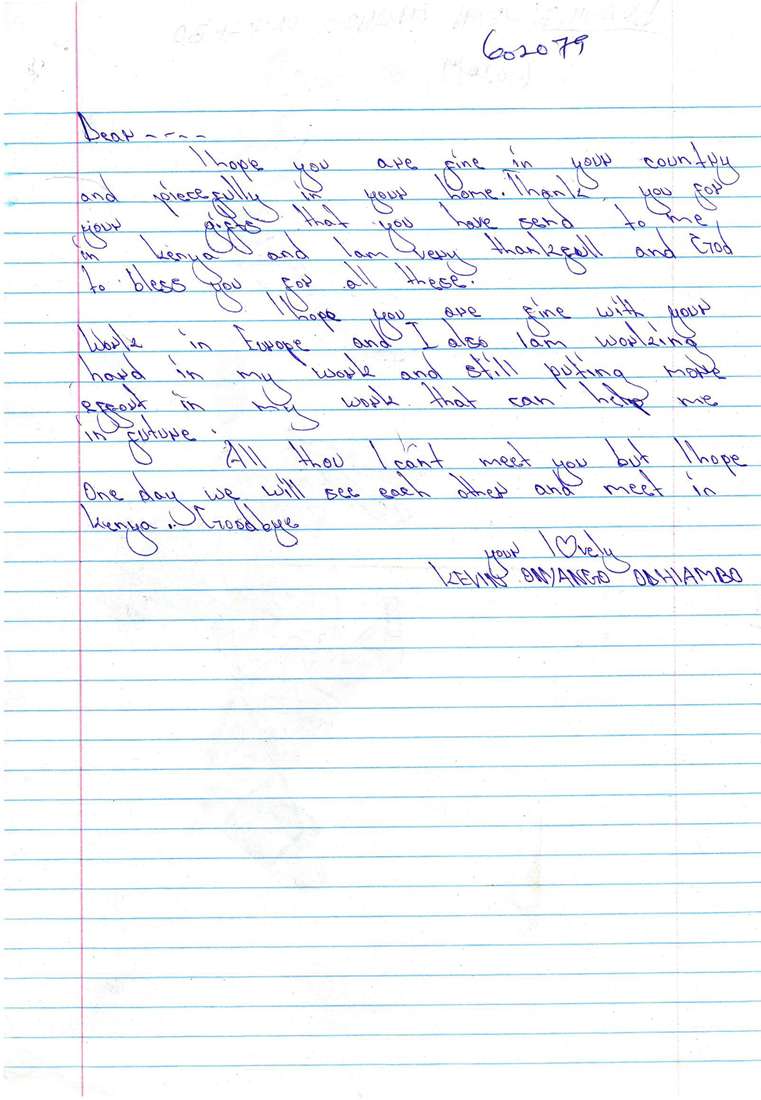 602079
Dear ----
I hope you are fine in your country
and piecefully in your home. Thank you for
your gifts that you have send to me
in Kenya and I am very thankfull and God
to bless you for all these.
I hope you are fine with your
Work in Europe and I also I am working
hard in my work and still puting more
effort in my work that can help me
in future.
All thou I can't meet you but I hope
One day we will see each other and meet in
Kenya.. Goodbye
your l♡vely
KEVIN ONYANGO ODHIAMBO